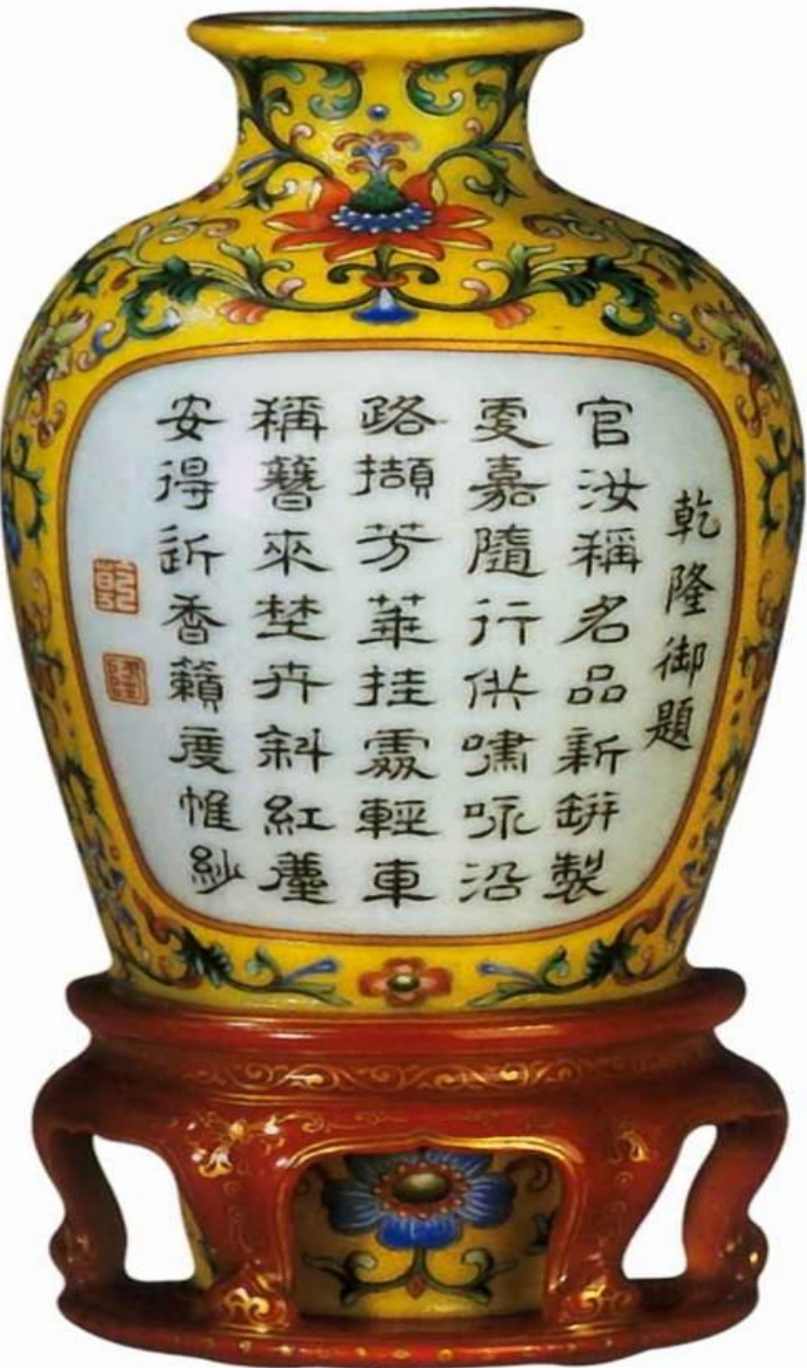 乾隆御題
官汝稱名品新缾製
更嘉隨行供嘯咏沿
路擷芳華挂處輕車
稱簪來埜卉斜紅塵
安得近香籟度帷紗